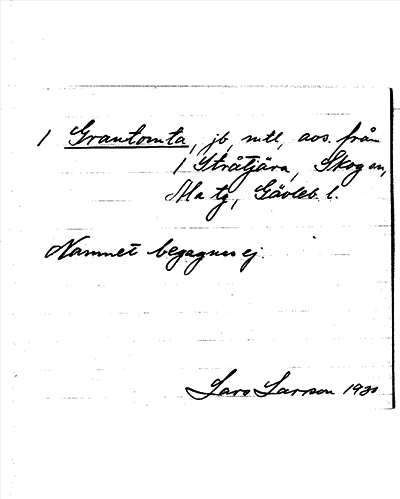 1 Grantomta, jb, mtl, avs. från
1 Stråtjära, Skog sn,
Ma tg, Gävleb l.
Namnet begagnas ej.
Lars Larsson 1930